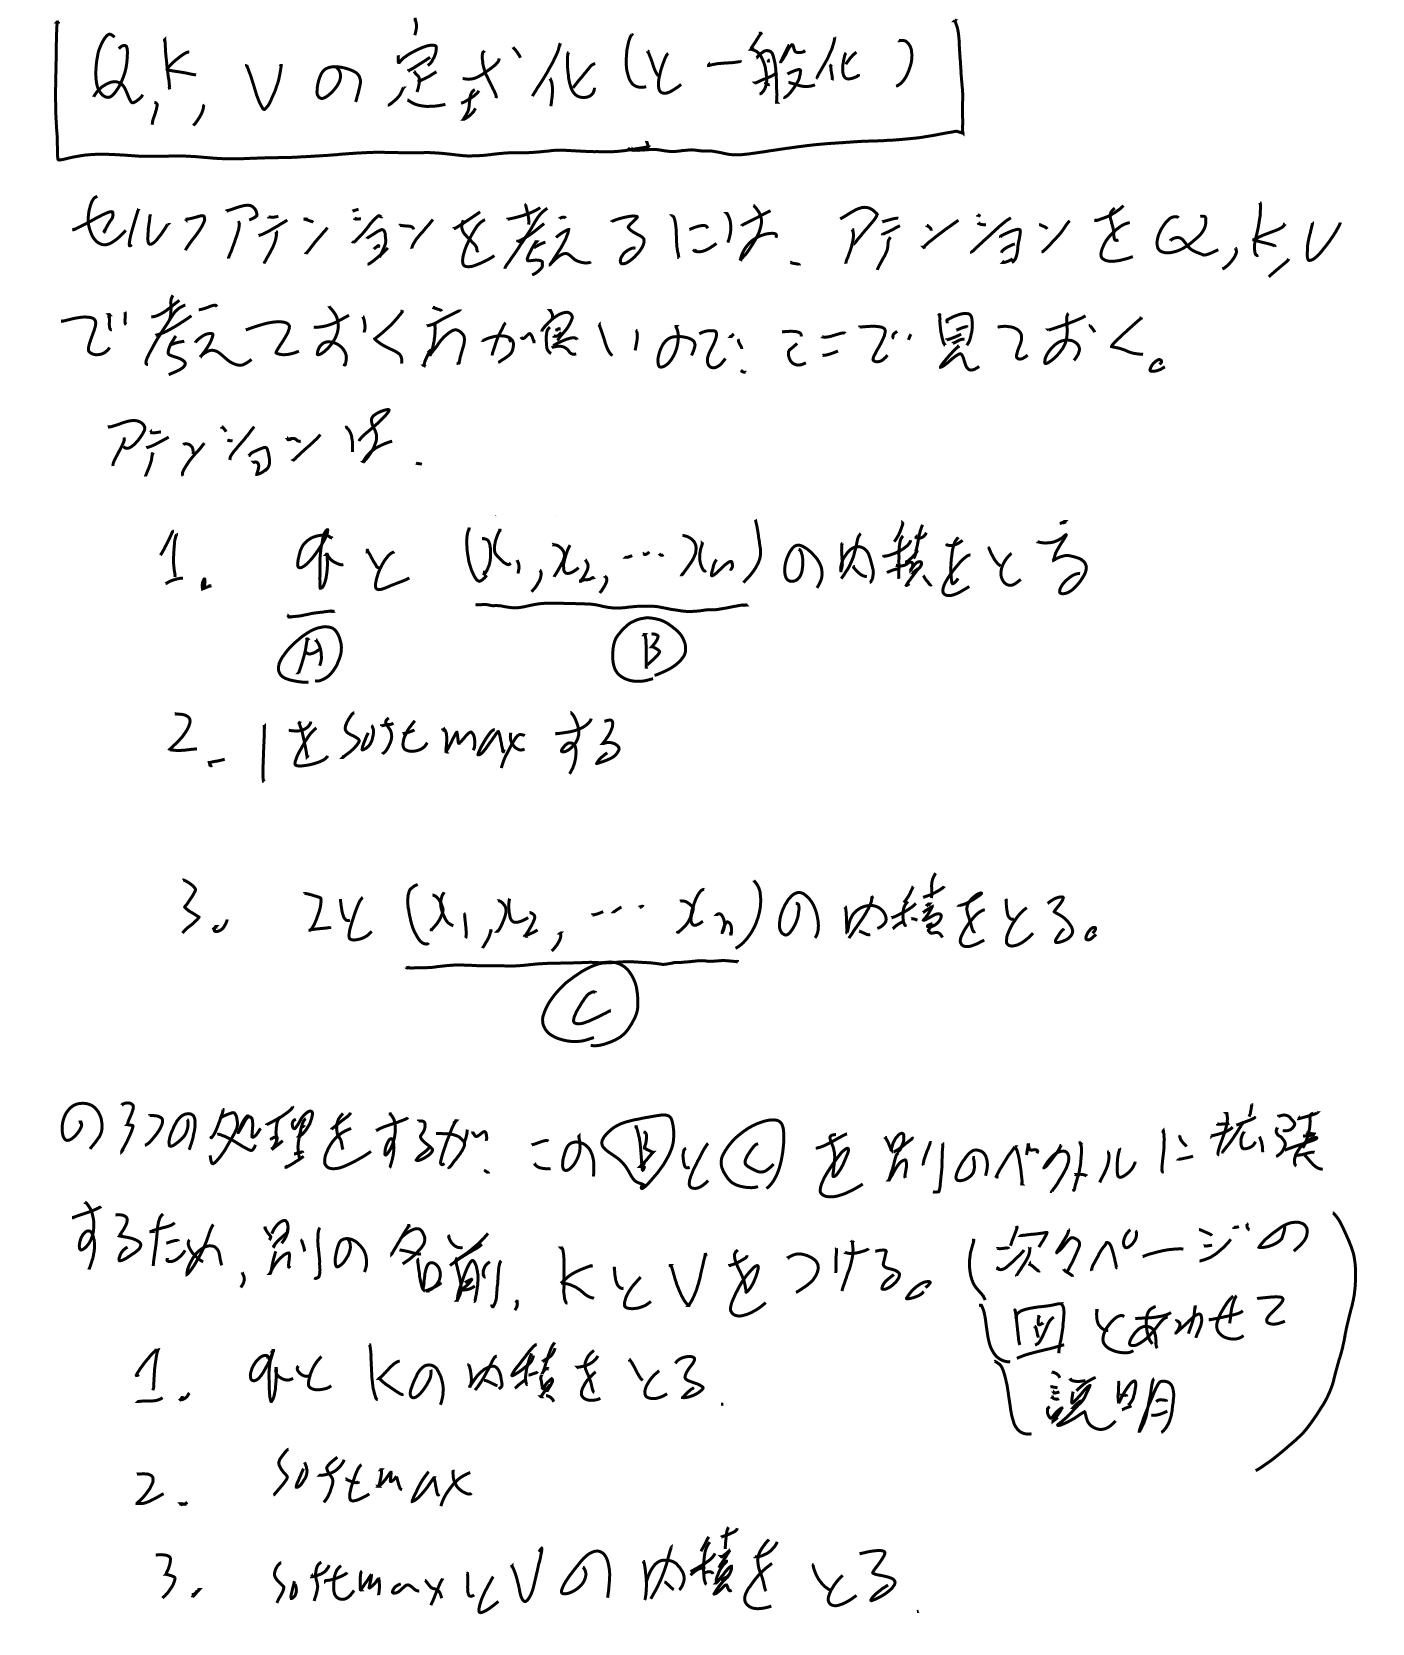 Q,K,Vの定式化(と一般化)
セルフアテンションを考えるには、アテンションをQ,K,V
で考えておく方が良いので、ここで見ておく。
アテンションは、
1. qと(x1,x2,…xn)の内積をとる
Ⓐ Ⓑ
2. 1をsoftmaxする
3. 2と(x1,x2,…xn)の内積をとる。
Ⓒ
の3つの処理をするが、このⒷとⒸを別のベクトルに拡張
するため,別の名前,KとVをつける。(次々ページの
図とあわせて
説明)
1. qとKの内積をとる.
2. softmax
3. softmaxとVの内積をとる.